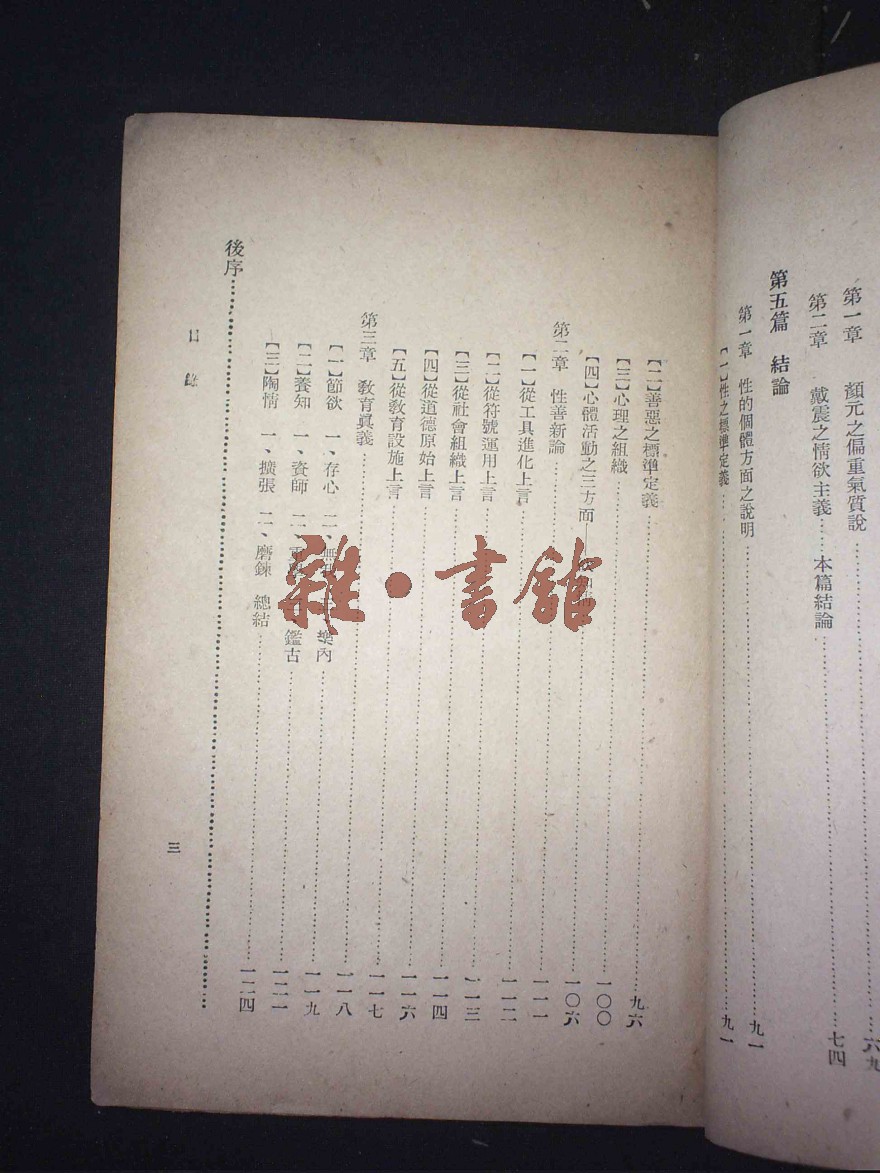 第一章 顏元之偏重氣質說……六九
第二章 戴震之情欲主義……本篇結論……七四
第五篇 結論
第一章 性的個體方面之說明……九一
【一】性之標準定義……九一
【二】善惡之標準定義……九六
【三】心理之組織……一〇〇
【四】心體活動之三方面……一〇六
第二章 性善新論……一一一
【一】從工具進化上言……一一二
【二】從符號運用上言……一一三
【三】從社會組織上言……一一四
【四】從道德原始上言……一一六
【五】從教育設施上言……一一七
第三章 教育眞義……一一八
【一】節欲 一、存心 二、無 樂內……一一九
【二】養知 一、資師 二、重 鑑古……一二一
【三】陶情 一、擴張 二、磨鍊 總結……一二四
後序……
目錄
三
雜·書館